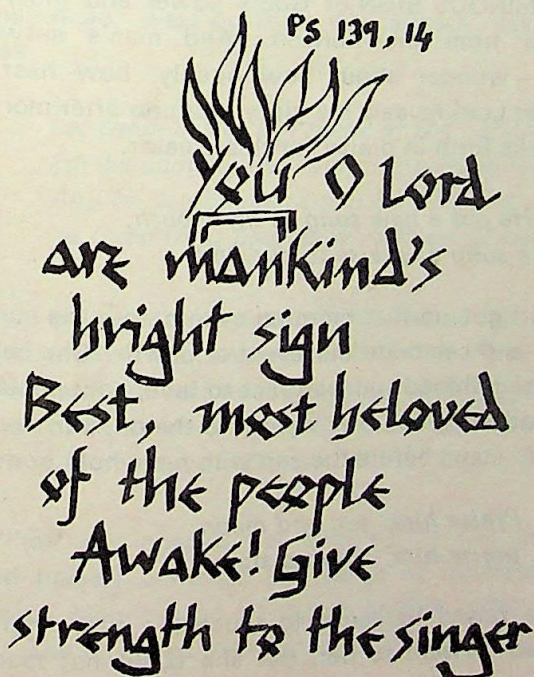 PS 139, 14
You O Lord
are mankind's
bright sign
Best, most beloved
of the people
Awake! Give
strength to the singer